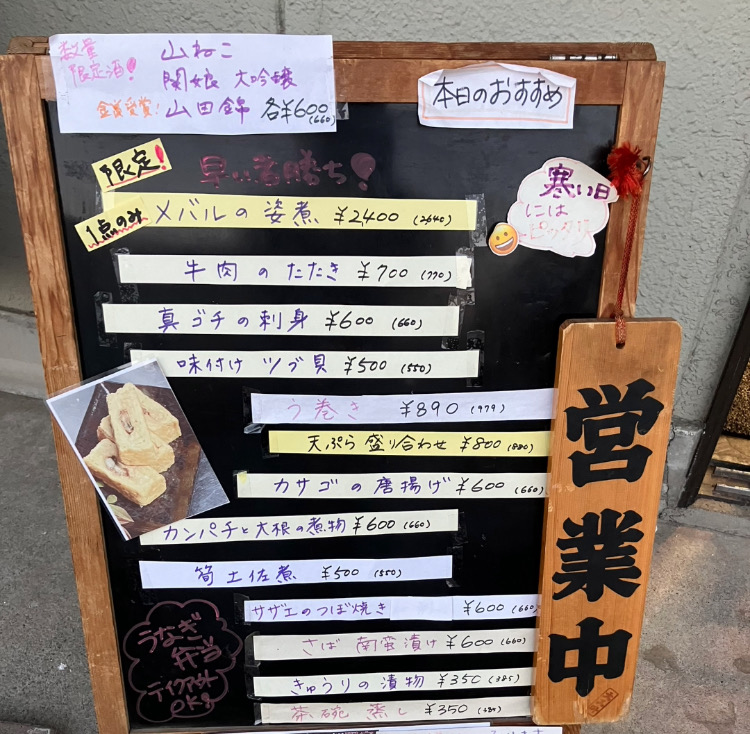 数量
限定酒!
山ねこ
関娘 大吟醸
金賞受賞! 山田錦 各¥600
(660)
本日のおすすめ
限定!
早い者勝ち!
1点のみ
メバルの姿煮 ¥2,400 (2640)
寒い日
には
ピッタリ
牛肉のたたき ¥700 (770)
真ゴチの刺身 ¥600 (660)
味付けツブ貝 ¥500 (550)
う巻き ¥890 (979)
天ぷら盛り合わせ ¥800 (880)
カサゴの唐揚げ ¥600 (660)
カンパチと大根の煮物 ¥600 (660)
筍土佐煮 ¥500 (550)
サザエのつぼ焼き ¥600 (660)
さば南蛮漬け ¥600 (660)
きゅうりの漬物 ¥350 (385)
茶碗蒸し ¥350 (385)
うなぎ
弁当
テイクアウト
OK!
営業中